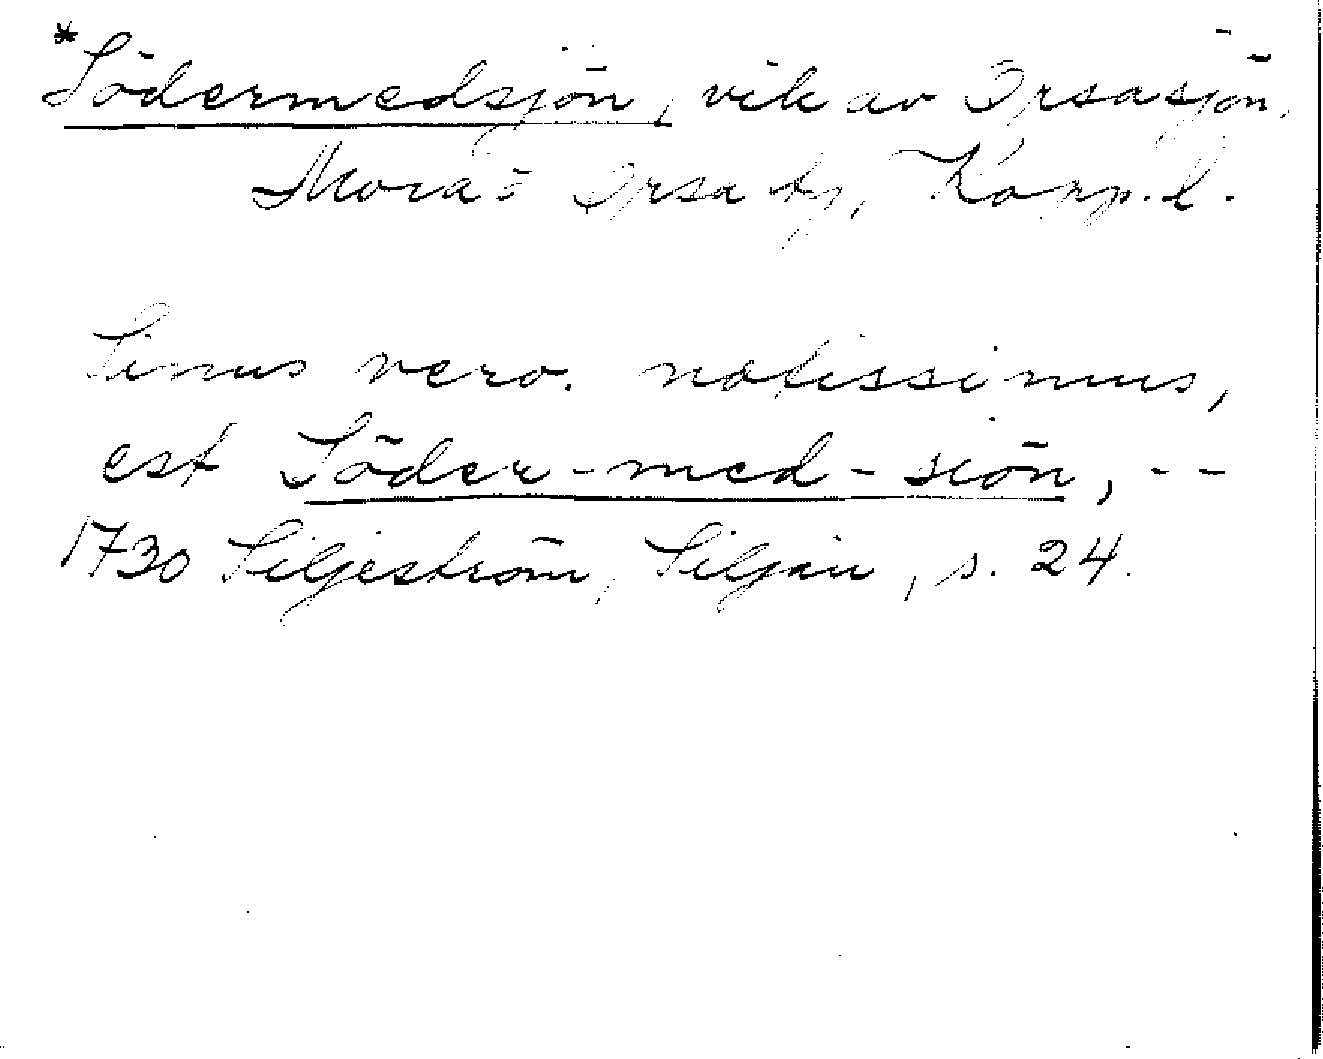 *Södermedsjön, vik av Orsasjön,
Mora o Orsa tg, Kopp. l.
Sinus vero. notissimus,
est Söder-med-siön, --
1730 Siljeström, Siljan, s. 24.